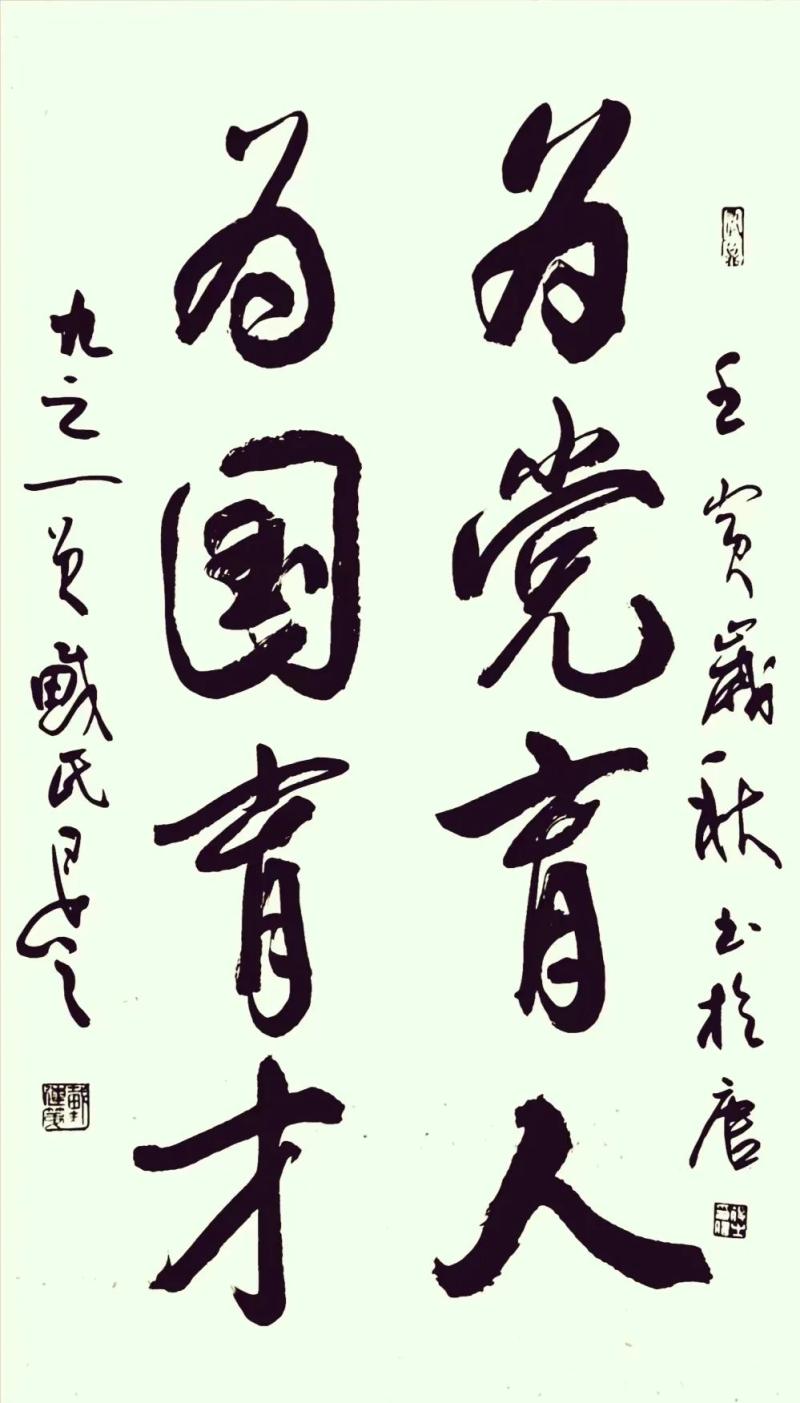 壬寅岁秋书于唐
为党育人
为国育才
九之一叟戴氏